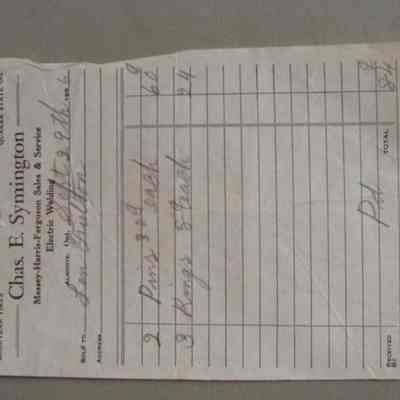 Chas. E. Symington
Massey-Harris-Ferguson Sales & Service
Electric Welding
ALMONTE, Ont. Sept 29th 196
SOLD TO Len
ADDRESS
2 Pins 30¢ each 60
3 Rings 8¢ each 24
Pd. TOTAL 84
RECEIVED
BY